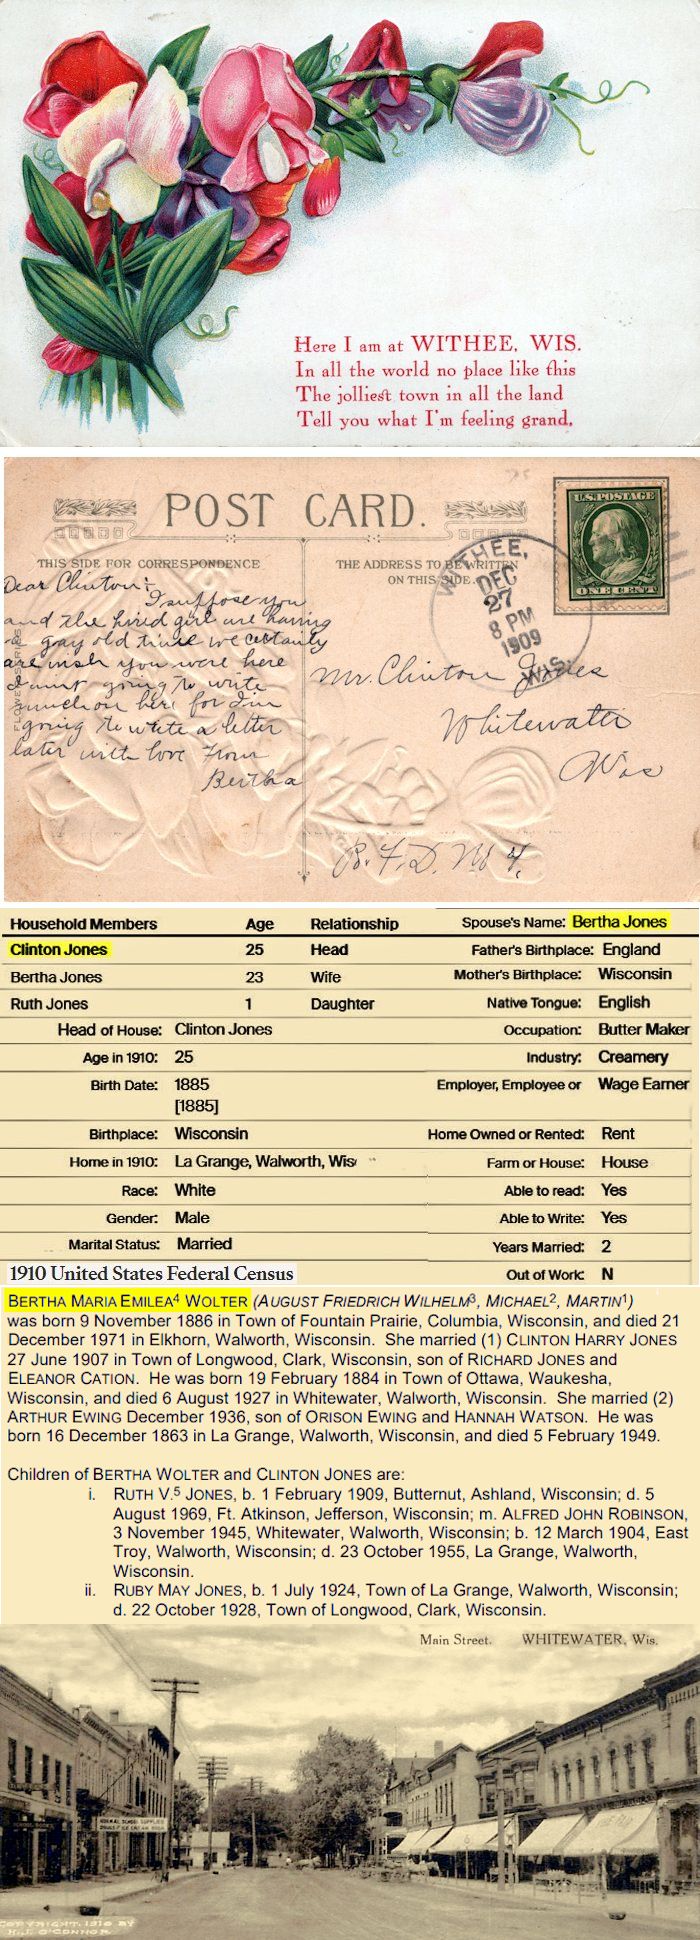 Here I am at WITHEE, WIS.
In all the world no place like this
The jolliest town in all the land
Tell you what I'm feeling grand.
POST CARD.
U.S. POSTAGE
ONE CENT
THIS SIDE FOR CORRESPONDENCE
THE ADDRESS TO BE WRITTEN
ON THIS SIDE.
WITHEE,
DEC
27
8 PM
1909
WIS.
Dear Clinton:
I suppose you
and the hired girl are having
a gay old time we certainly
are wish you were here
I aint going to write
much on here for I'm
going to write a letter
later with love from
Bertha
FLOWER SERIES
Mr. Clinton Jones
Whitewater
Wis
R.F.D. No 4.
Household Members Age Relationship
Clinton Jones 25 Head
Bertha Jones 23 Wife
Ruth Jones 1 Daughter
Head of House: Clinton Jones
Age in 1910: 25
Birth Date: 1885
[1885]
Birthplace: Wisconsin
Home in 1910: La Grange, Walworth, Wis
Race: White
Gender: Male
Marital Status: Married
1910 United States Federal Census
Spouse's Name: Bertha Jones
Father's Birthplace: England
Mother's Birthplace: Wisconsin
Native Tongue: English
Occupation: Butter Maker
Industry: Creamery
Employer, Employee or Wage Earner
Home Owned or Rented: Rent
Farm or House: House
Able to read: Yes
Able to Write: Yes
Years Married: 2
Out of Work: N
BERTHA MARIA EMILEA⁴ WOLTER (AUGUST FRIEDRICH WILHELM³, MICHAEL², MARTIN¹)
was born 9 November 1886 in Town of Fountain Prairie, Columbia, Wisconsin, and died 21
December 1971 in Elkhorn, Walworth, Wisconsin. She married (1) CLINTON HARRY JONES
27 June 1907 in Town of Longwood, Clark, Wisconsin, son of RICHARD JONES and
ELEANOR CATION. He was born 19 February 1884 in Town of Ottawa, Waukesha,
Wisconsin, and died 6 August 1927 in Whitewater, Walworth, Wisconsin. She married (2)
ARTHUR EWING December 1936, son of ORISON EWING and HANNAH WATSON. He was
born 16 December 1863 in La Grange, Walworth, Wisconsin, and died 5 February 1949.
Children of BERTHA WOLTER and CLINTON JONES are:
i. RUTH V.⁵ JONES, b. 1 February 1909, Butternut, Ashland, Wisconsin; d. 5
August 1969, Ft. Atkinson, Jefferson, Wisconsin; m. ALFRED JOHN ROBINSON,
3 November 1945, Whitewater, Walworth, Wisconsin; b. 12 March 1904, East
Troy, Walworth, Wisconsin; d. 23 October 1955, La Grange, Walworth,
Wisconsin.
ii. RUBY MAY JONES, b. 1 July 1924, Town of La Grange, Walworth, Wisconsin;
d. 22 October 1928, Town of Longwood, Clark, Wisconsin.
Main Street. WHITEWATER, Wis.
SCHOOL BOOKS
SCHOOL SUPPLIES
DRUGS ICE CREAM SODA
COPYRIGHT. 1910 BY
H.J. O'CONNOR